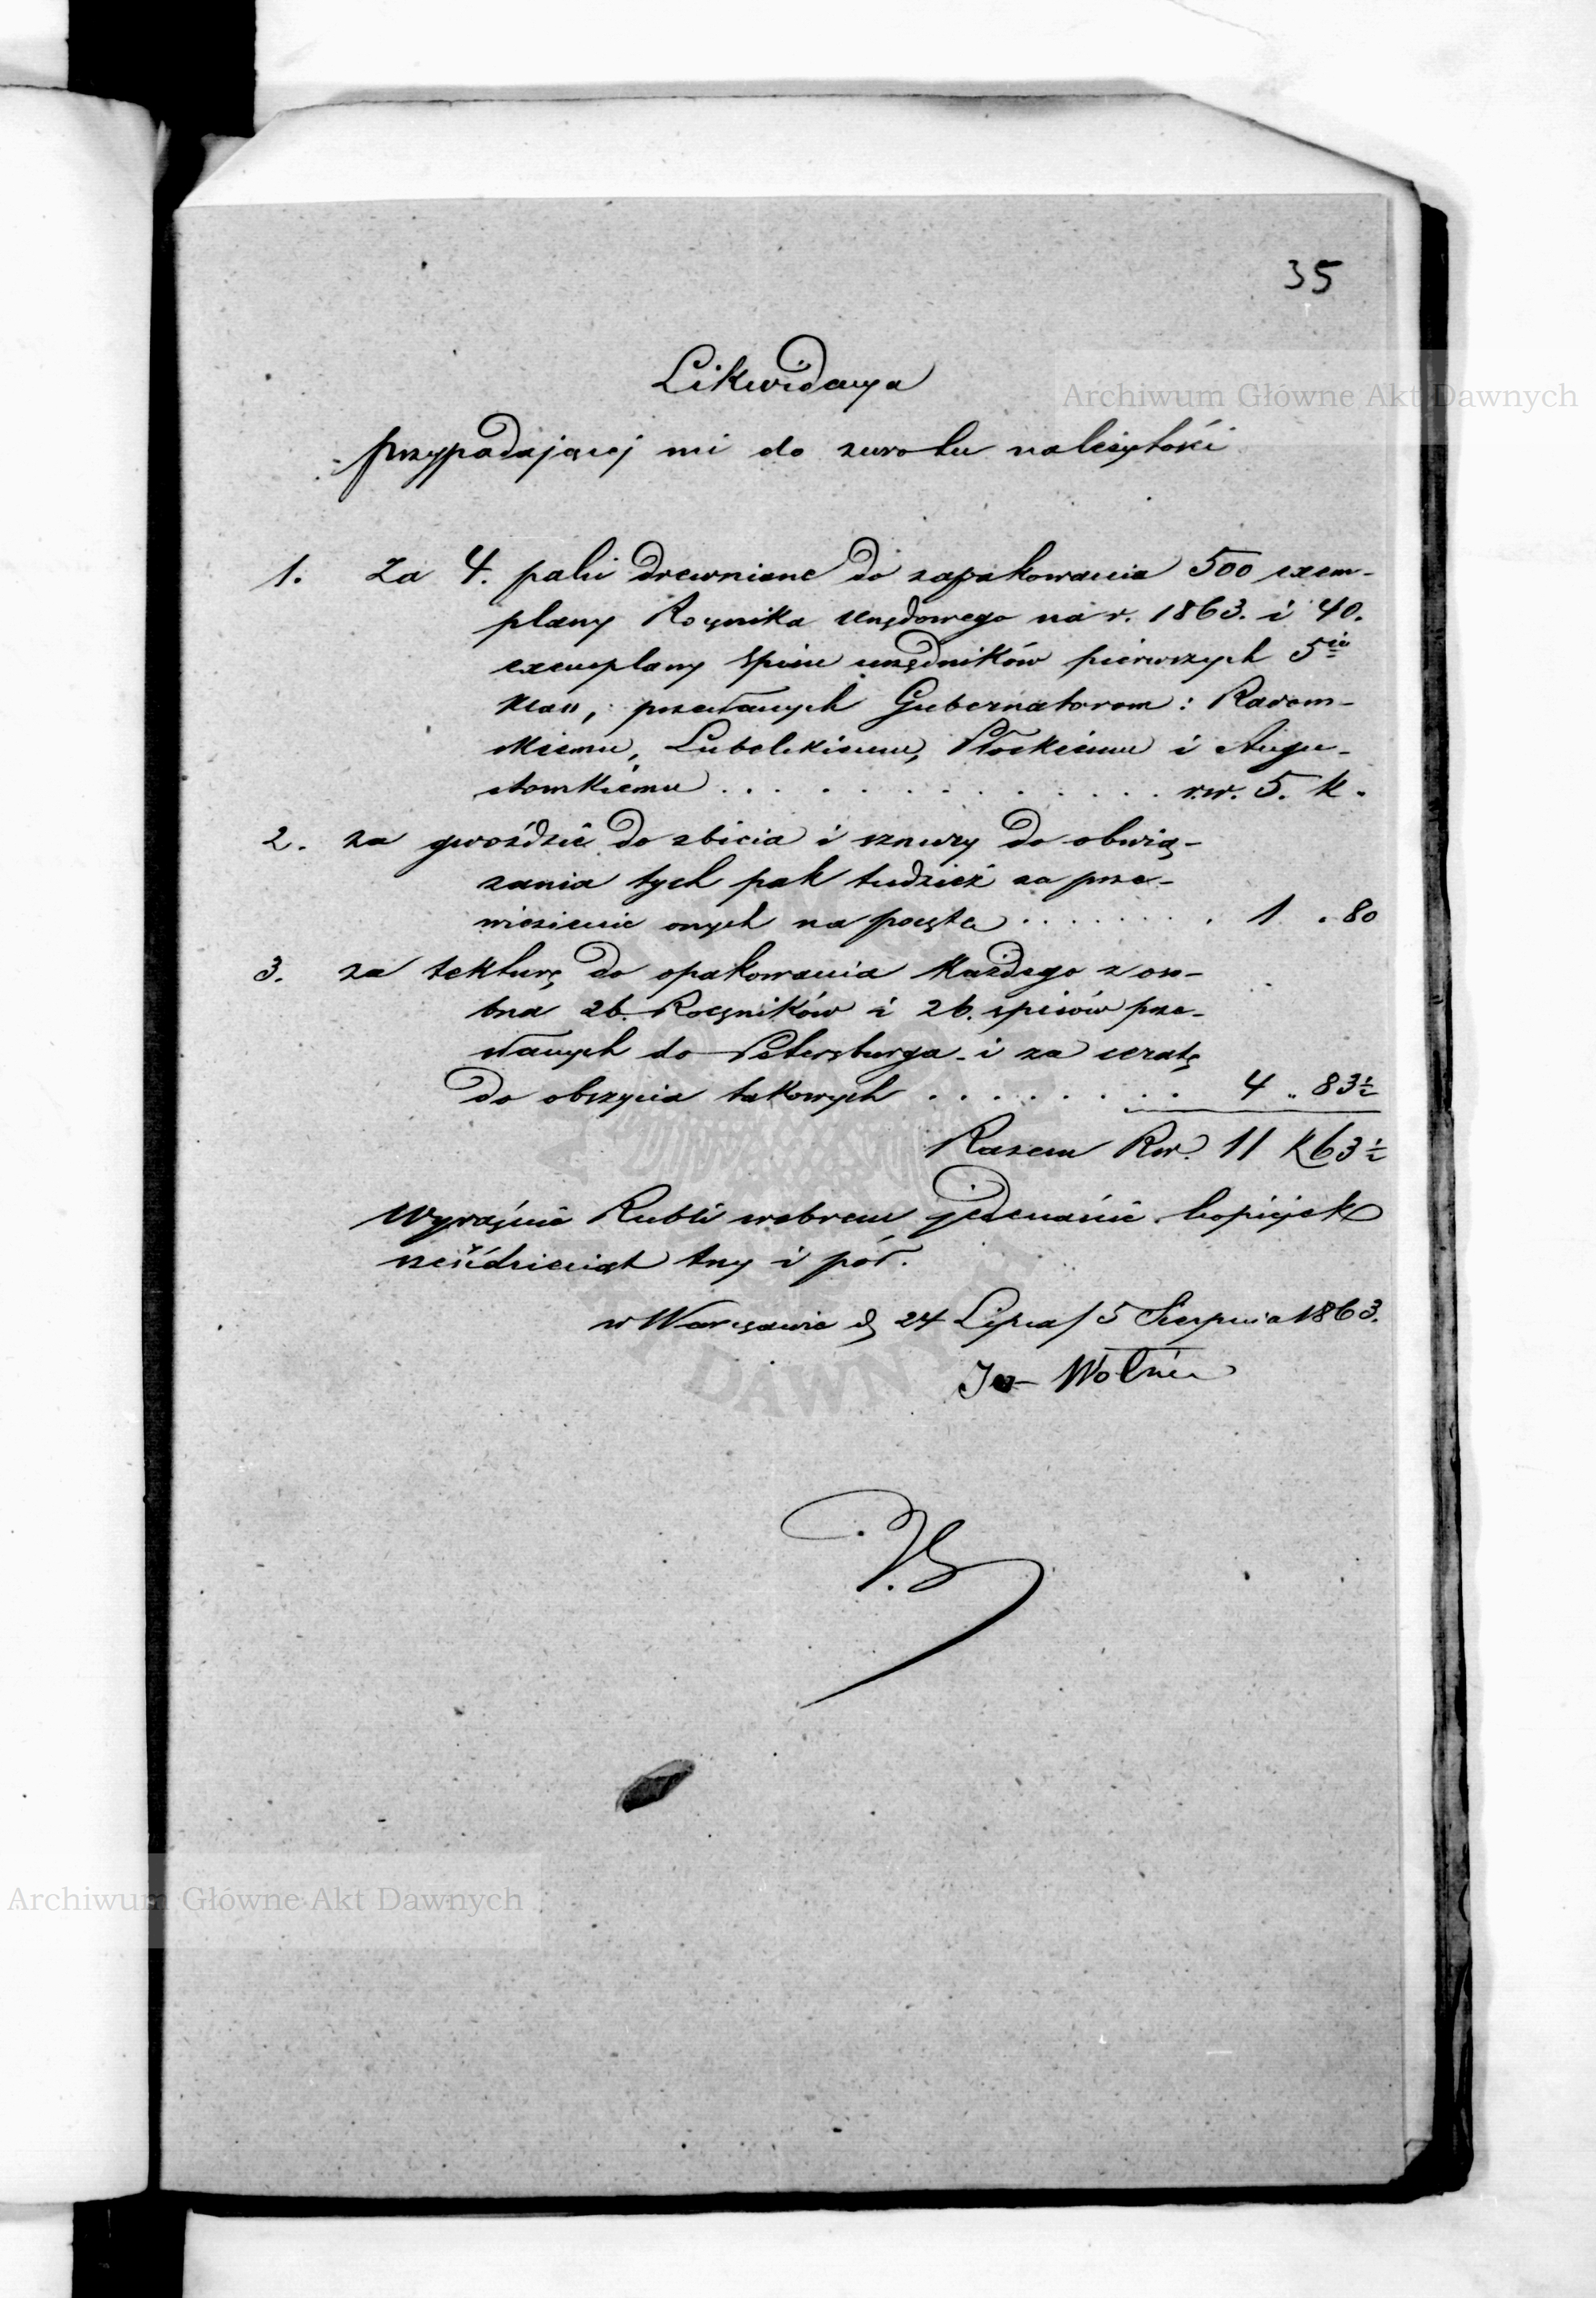 35
Likwidacya
przypadającej mi do zwrotu należytości
1. Za 4. paki drewniane do zapakowania 500 exem-
plarzy Rocznika Urzędowego na r. 1863. i 40.
exemplarzy spisu urzędników pierwszych 5ciu
klass, przesłanych Gubernatorom: Radom-
skiemu, Lubelskiemu, Płockiemu i Augu-
stowskiemu . . . . . . . . . . . . . rsr. 5. k.
2. za gwoździe do zbicia i sznury do obwią-
zania tych pak tudzież za prze-
wiezienie onych na pocztę . . . . . . . 1 . 80
3. za tekturę do opakowania każdego z oso-
bna 26. Roczników i 26. spisów prze-
słanych do Petersburga i za ceratę
do obszycia takowych . . . . . . . . 4 . 83½
Razem Rsr. 11 k 63½
Wyraźnie Rubli srebrem jedenaście kopiejek
sześćdziesiąt trzy i pół.
w Warszawie d. 24 Lipca/5 Sierpnia 1863.
Archiwum Główne Akt Dawnych
Archiwum Główne Akt Dawnych
DAWNYCH